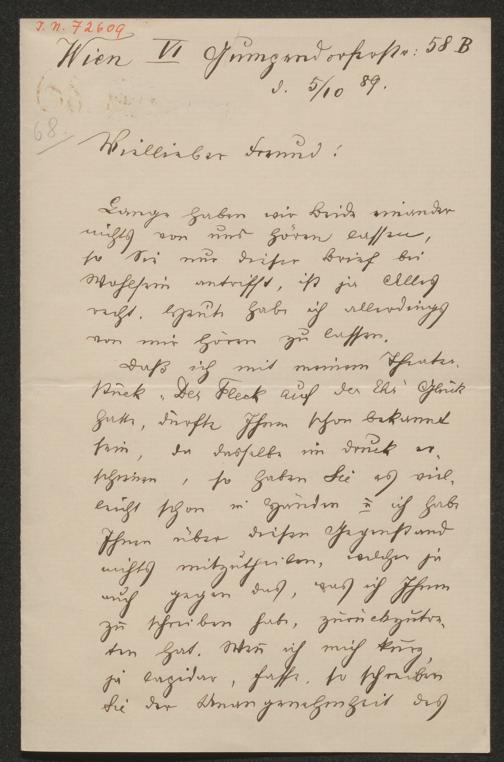 J. N. 72609
Wien VI Gumpendorferstr: 58 B
d. 5/10 89.
68.
Viellieber Freund!
Lange haben wir beide einander
nichts von uns hören lassen,
so Sie nur dieser Brief bei
Wohlsein antrifft, ist ja Alles
recht. Heute habe ich allerdings
von mir hören zu lassen.
Daß ich mit meinem Theater-
stück „Der Fleck auf der Ehr" Glück
hatte, dürfte Ihnen schon bekannt
sein, da dasselbe im Druck er-
schienen, so haben Sie es viel-
leicht schon in Händen u̅ ich habe
Ihnen über diesen Gegenstand
nichts mitzutheilen, welcher ja
auch gegen das, was ich Ihnen
zu schreiben habe, zurückzutre-
ten hat. Wen̅ ich mich kurz,
ja lapidar, fasse, so schreiben
Sie der Unangenehmheit des